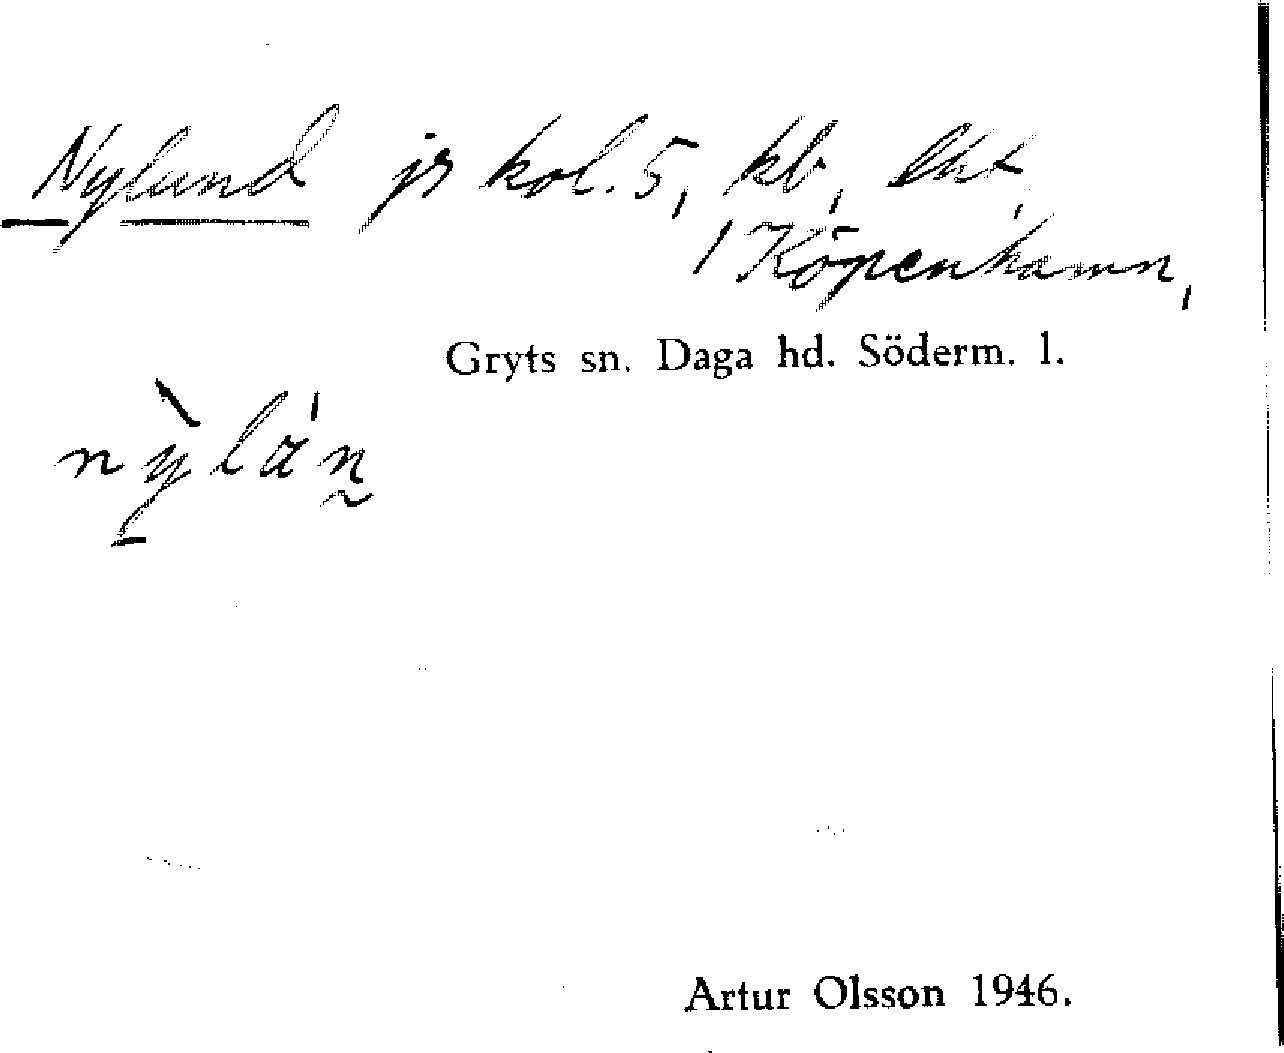 Nylund js kol. 5, kb, lht,
/ Köpenhamn,
Gryts sn. Daga hd. Söderm. l.
Artur Olsson 1946.